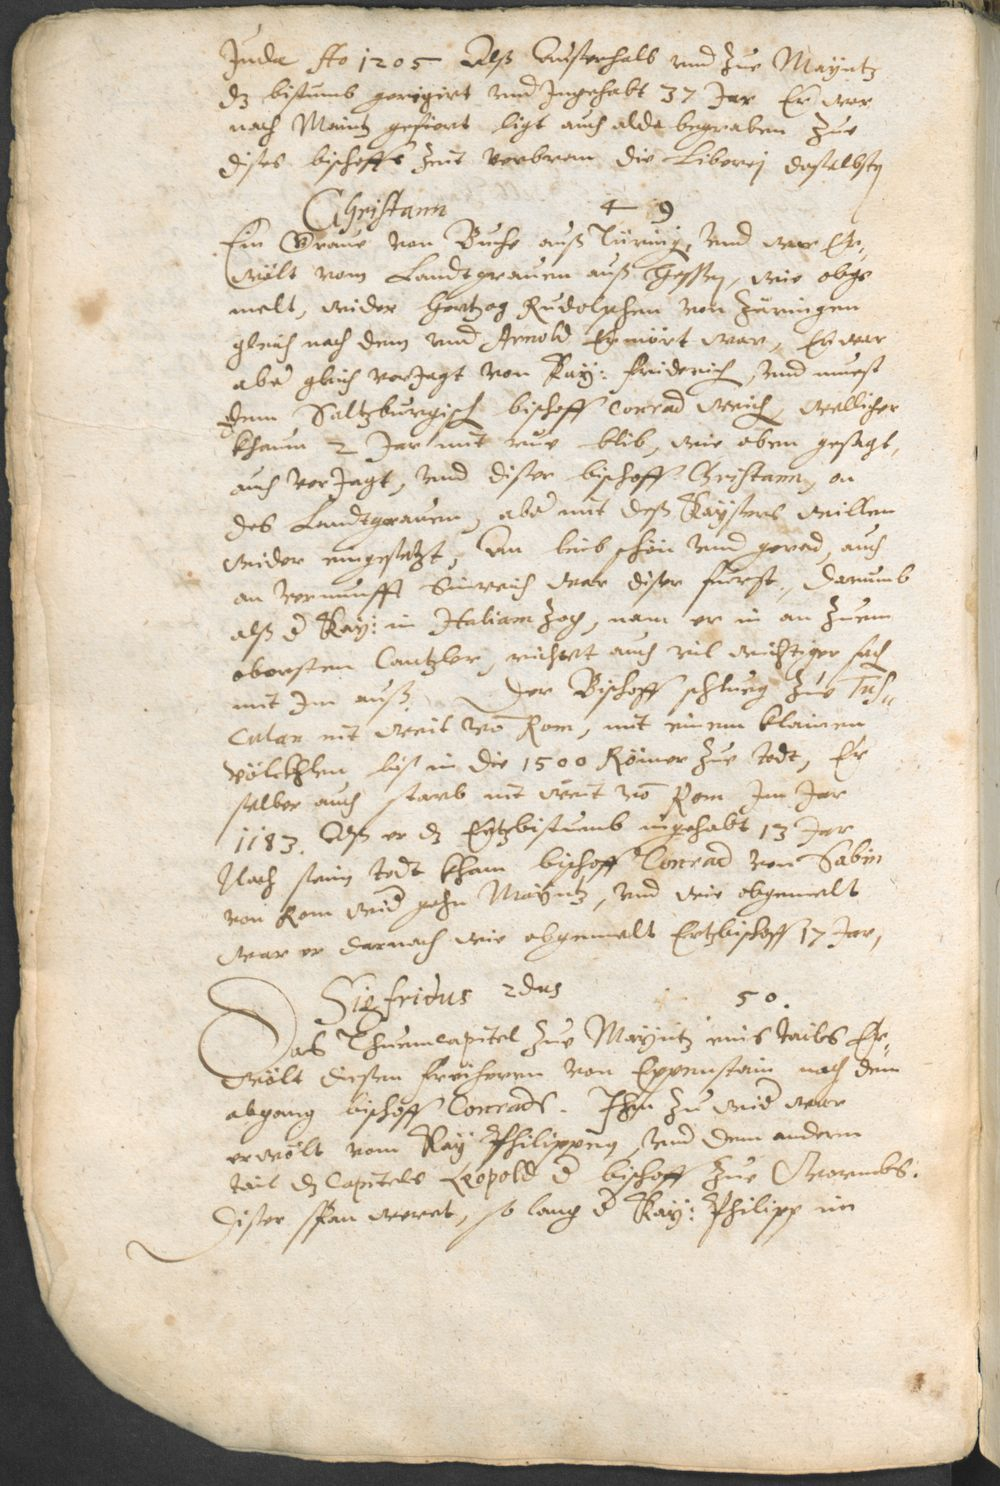 Judæ Ao 1205 Alß Ausserhalb vnd Zue Mäyntz
dz bistumb geregiert vnd Ingehabt 37 Jar Er war
nach Maintz gefiert ligt auch alda begraben Zue
dises bischoffs Zeit verbran die Liberej daselbsten
Christann 49
Ein Graue von Buche auß Türing, vnd war Er-
wölt vom Landtgrauen auß Hessen, wie obge
melt, wider Hertzog Rudolphen von Zäringen
gleich nach dem vnd Arnold Ermört war, Er war
aber gleich verJagt von Kay: Friderich, vnd muest
dem Saltzburgisch bischoff Conrad weich, wellicher
khaum 2 Jar mit rue blib, wie oben gesagt,
auch verJagt, vnd diser bischoff Christann, on
des Landtgrauen, aber mit deß Kaysers willen
wider eingesetzt, Am leib schön vnd gerad, auch
an vernunfft Sinreich war diser furst, darumb
alß d Kay: in Italiam Zog, nam er in an Zuem
obersten Cantzler, richtet auch vil wichtiger sach
mit Im auß. Der Bischoff schlueg Zue Tus-
culan nit weit vo Rom, mit einem klainen
völckhlen biß in die 1500 Römer Zue todt, Er
selber auch starb nit weit vo Rom Im Jar
1183. Alß er dz Ertzbistumb ingehabt 13 Jar
Nach seim todt kham bischoff Conrad von Sabin
von Rom wid gehn Mäyntz, vnd wie obgemelt
war er darnach wie obgemelt Ertzbischoff 17 Jar,
Sigfridus 2dus 50.
Das Thuemcapitel Zue Mäyntz eins tailes Er-
wölt diesen freiherren von Eppenstain nach dem
abgang bischoff Conrads. Ihm Zu wid war
erwölt vom Kay Philippen, vnd dem andern
tail dz Capitels Leopold d bischoff Zue Wormbs.
Diser span weret, so lang d Kay: Philipp im